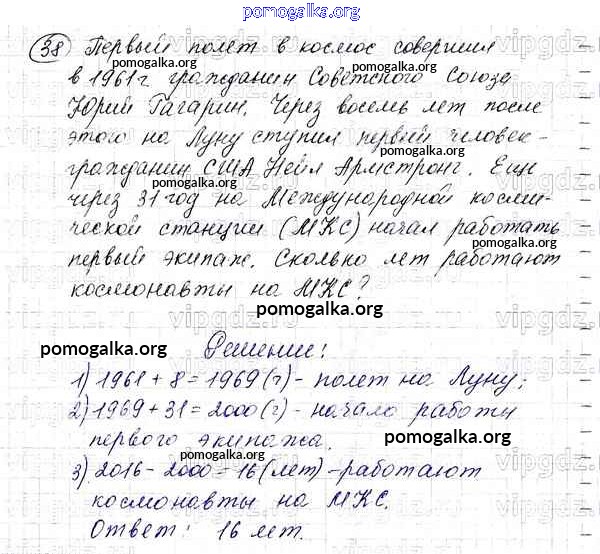 pomogalka.org
38 Первый полет в космос совершил
в 1961 г гражданин Советского Союза
Юрий Гагарин. Через восемь лет после
этого на Луну ступил первый человек-
pomogalka.org
гражданин США Нейл Армстронг. Еще
через 31 год на Международной косми-
ческой станции (МКС) начал работать
pomogalka.org
первый экипаж. Сколько лет работают
космонавты на МКС?
pomogalka.org
Решение:
pomogalka.org
1) 1961 + 8 = 1969 (г) - полет на Луну;
pomogalka.org
2) 1969 + 31 = 2000 (г) - начало работы
первого экипажа.
pomogalka.org
3) 2016 - 2000 = 16 (лет) - работают
pomogalka.org
космонавты на МКС.
Ответ: 16 лет.
pomogalka.org